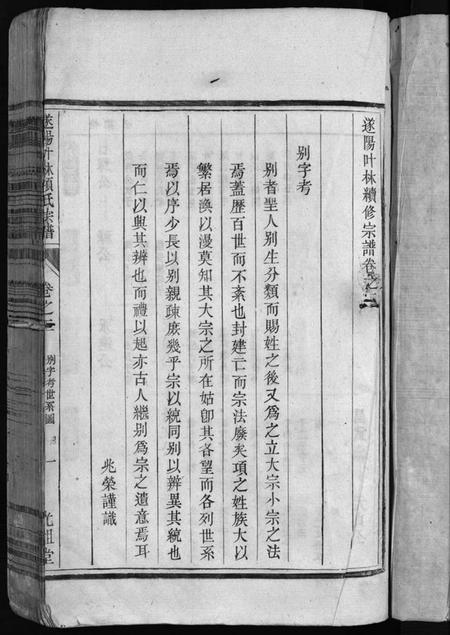 遂陽叶林續修宗譜卷之二
别字考
别者聖人别生分類而賜姓之後又爲之立大宗小宗之法
焉蓋歷百世而不紊也封建亡而宗法廢矣項之姓族大以
繁居渙以漫莫知其大宗之所在姑卽其各望而各列世系
焉以序少長以别親疎庶幾乎宗以統同别以辨異其統也
而仁以與其辨也而禮以起亦古人繼别爲宗之遺意焉耳
兆榮謹識
遂陽叶林項氏宗譜
卷之二
别字考世系圖
一
光祖堂